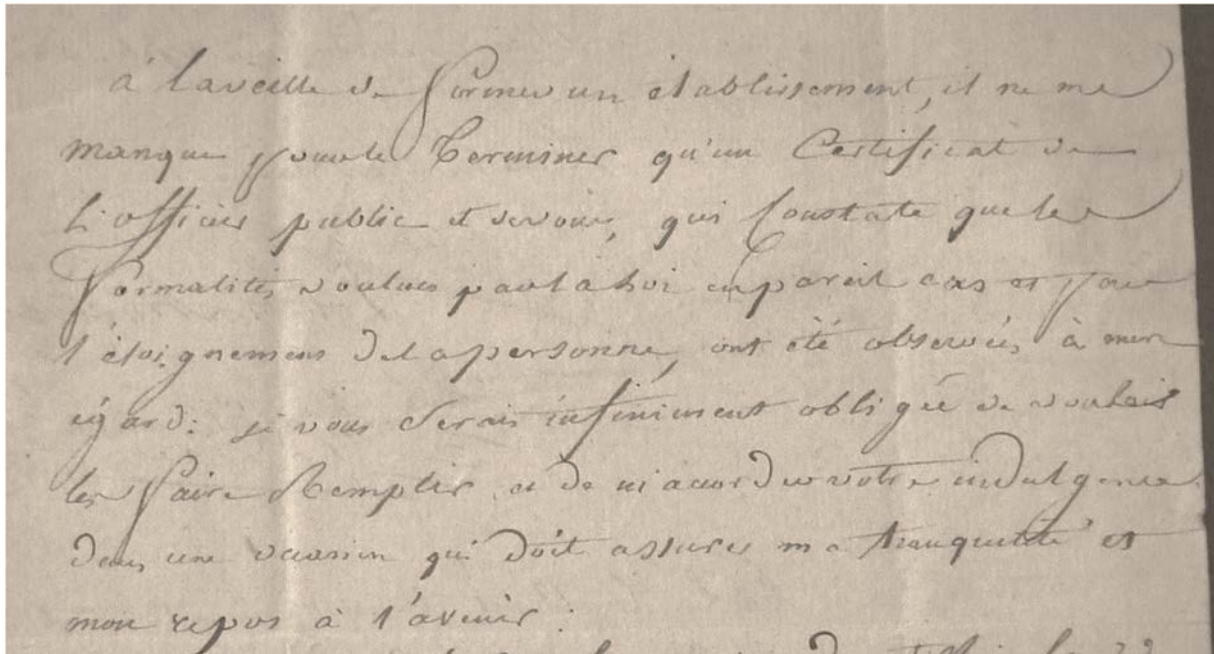 à la veille de former un établissement, il ne me
manque pour le terminer qu'un Certificat de
L'officier public et de vous, qui Constate que les
formalités voulues par la Loi en pareil cas et pour
l'éloignement de la personne, ont été observées à mon
égard: je vous serais infiniment obligée de vouloir
les faire Remplir et de m'accorder votre indulgence
dans une occasion qui doit assurer ma tranquillité et
mon repos à l'avenir.